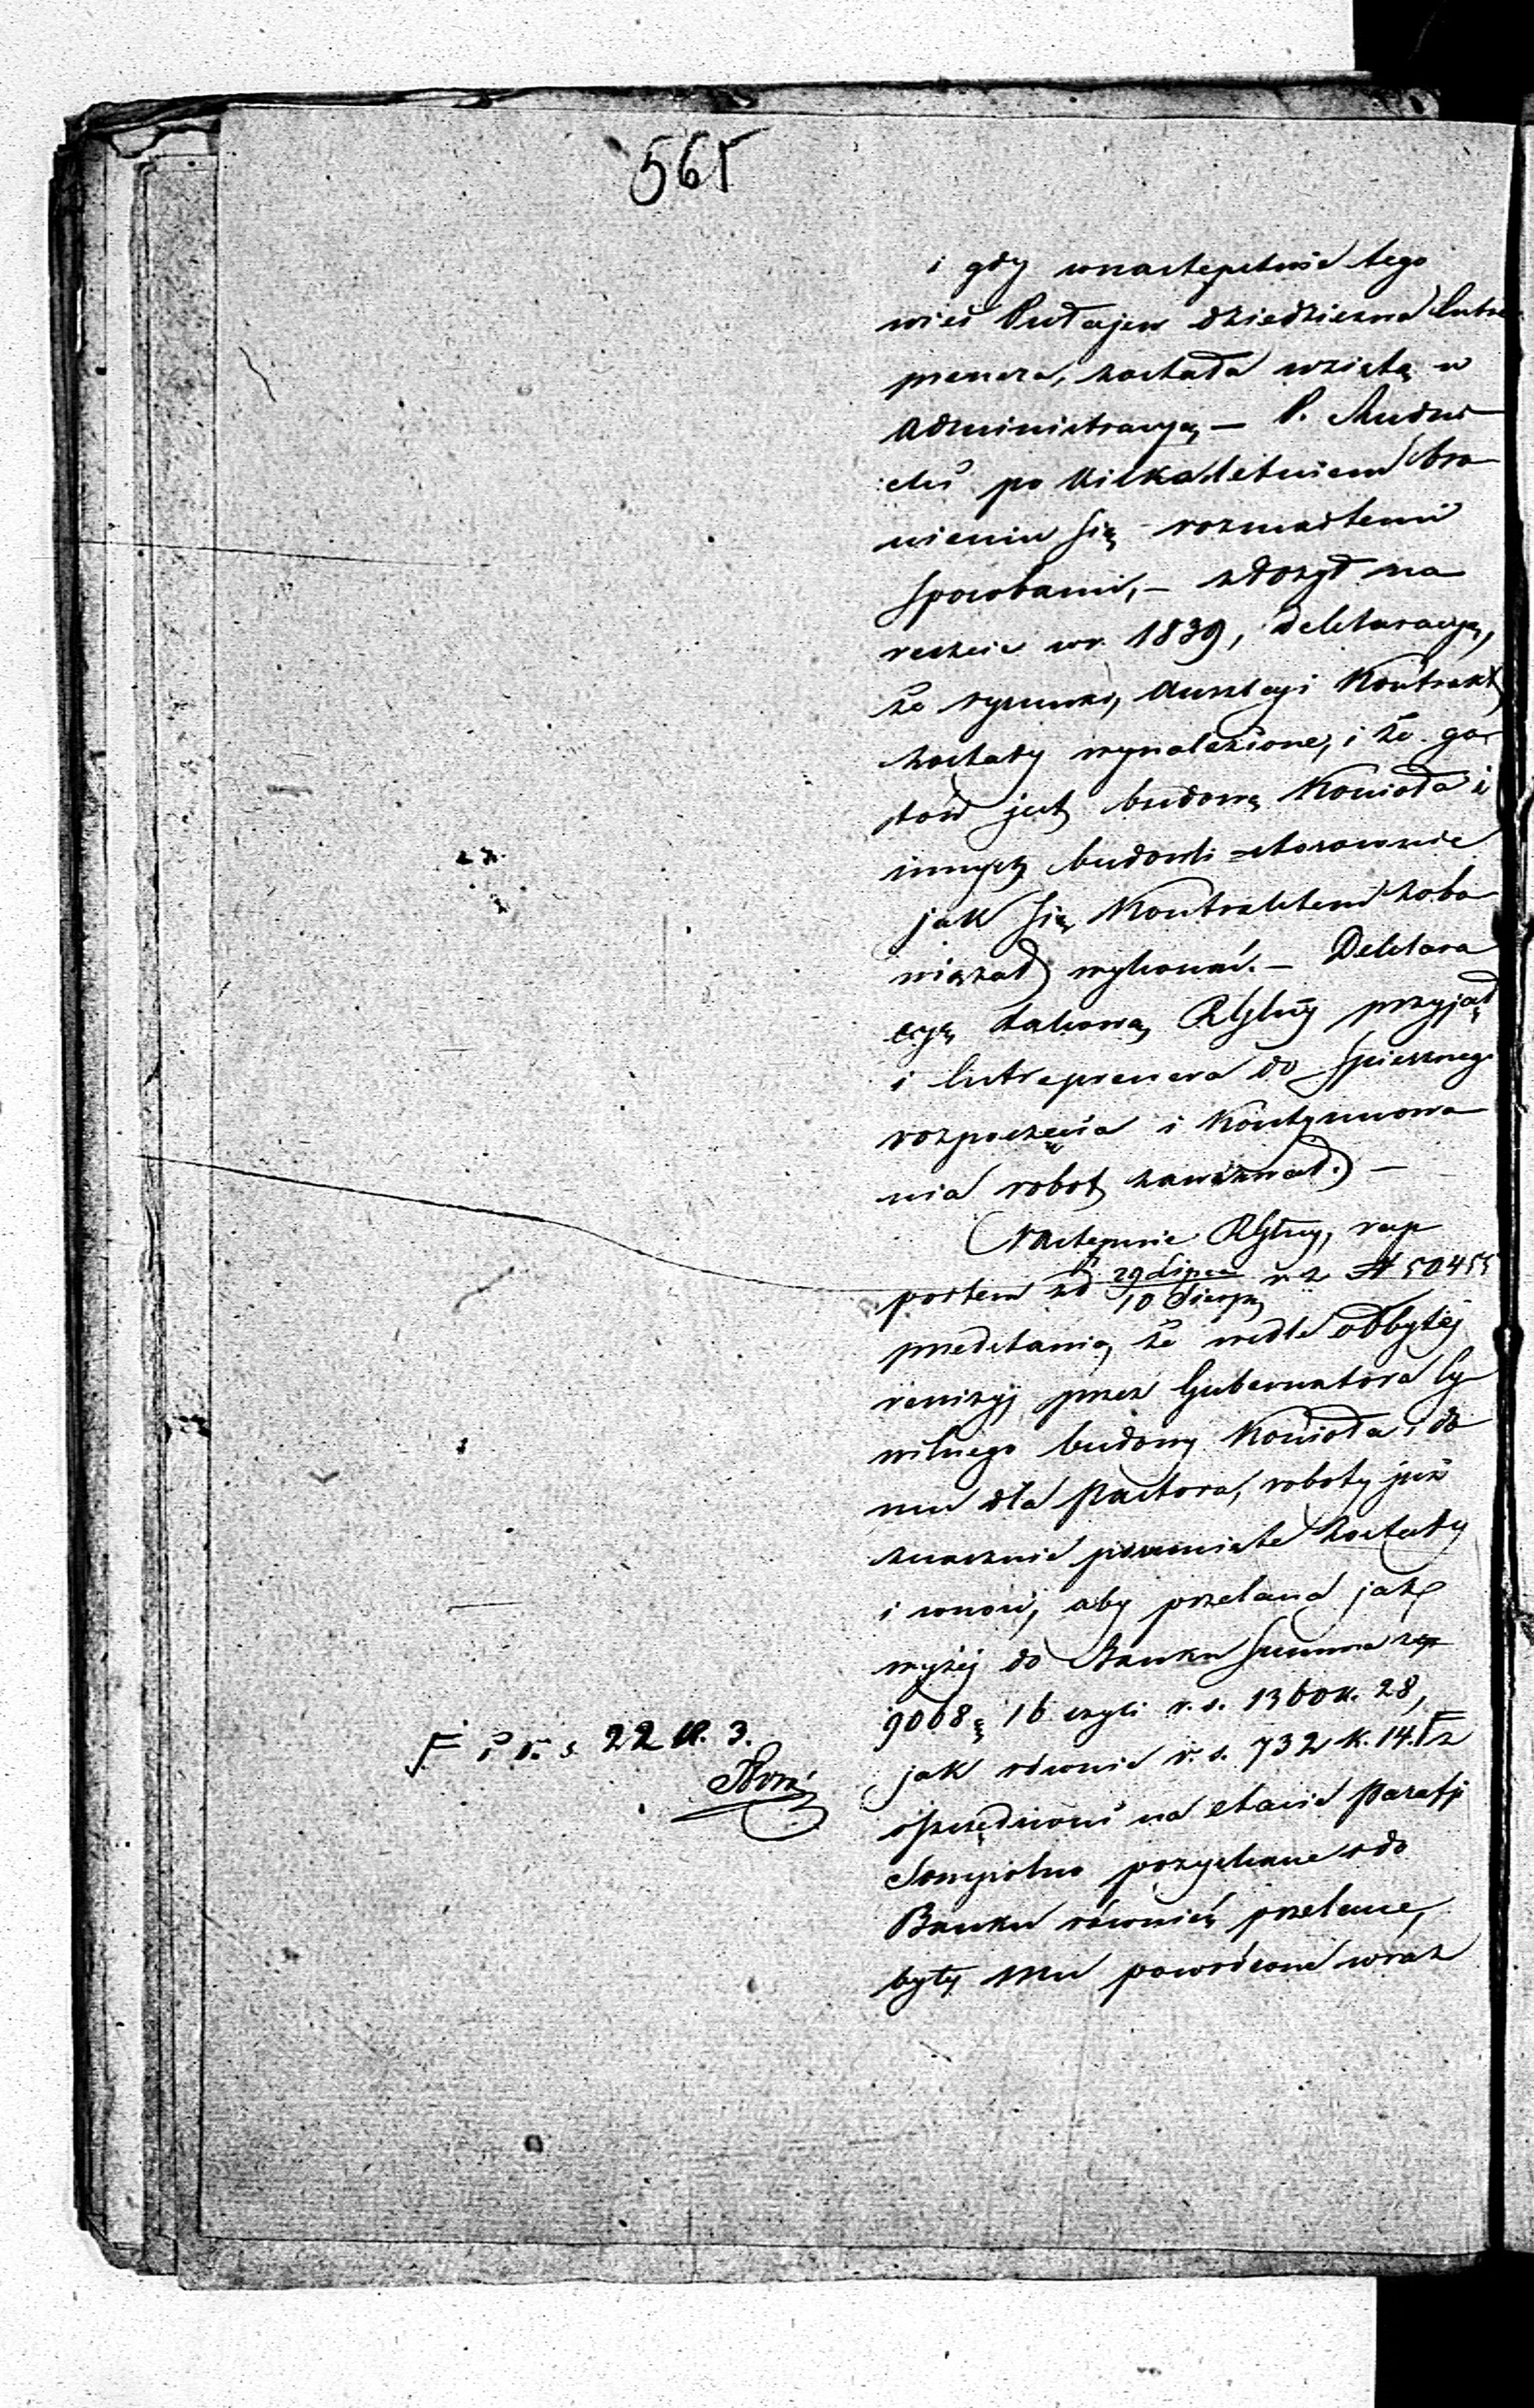 565
i gdy wnastępstwie tego
wieś Pułajew dziedziczna Entre
prenera, została wziętą w
Administracyą, — P.
cki po kilkaletniem bro
nieniu się rozmaitemi
sposobami, — złożył na
reszcie wr. 1839, deklaracyą,
że rysunki, Anszlagi Kontrakt
zostały wynalezione, i że go
tow jest budowę Kościoła i
innych budowli stosownie
jak się Kontraktem zobo
wiązał wykonać. — Deklara
cyę takową RGlny przyjął
i Entreprenera do spiesznego
rozpoczęcia i kontynuowa
nia robot zawezwał. —
Następnie RGlny, rap
portem zd 29 Lipca / 10 Sierp. r. z. N 50455
przedstawia, że wedle odbytej
rewizyj przez Gubernatora Cy
wilnego budowy Kościoła i do
mu dla Pastora, roboty już
znacznie posunięte zostały
i wnosi, aby przelana jak
wyżej do Banku Summa złp
9068 g 16 czyli r. s. 1360 k. 28,
jak równie r. s. 732 k. 14. F z
oszczędności na etacie Parafji
Sompolno pozyskane a do
Banku również przelane,
były mu powrócone wraz
F i r. s. 22 k. 3.